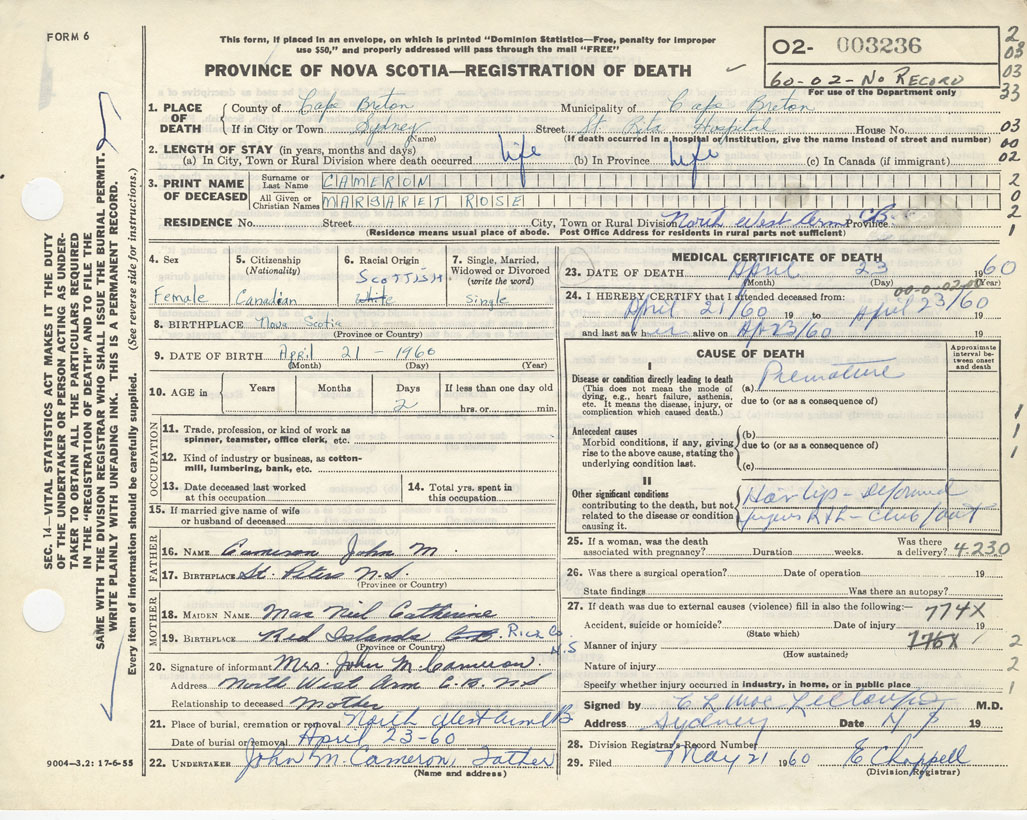 FORM 6
This form, if placed in an envelope, on which is printed "Dominion Statistics—Free, penalty for improper
use $50," and properly addressed will pass through the mail "FREE"
PROVINCE OF NOVA SCOTIA—REGISTRATION OF DEATH
02- 003236
60-02-No Record
For use of the Department only
2
03
03
33
1. PLACE OF DEATH County of Cape Breton Municipality of Cape Breton
If in City or Town Sydney Street St Rita Hospital House No.
(Name) (If death occurred in a hospital or institution, give the name instead of street and number)
03
00
02
2. LENGTH OF STAY (in years, months and days)
(a) In City, Town or Rural Division where death occurred Life (b) In Province Life (c) In Canada (if immigrant)
3. PRINT NAME OF DECEASED Surname or Last Name CAMERON
All Given or Christian Names MARGARET ROSE
2
0
2
1
RESIDENCE No. Street City, Town or Rural Division North West Arm Province C.B.
(Residence means usual place of abode. Post Office Address for residents in rural parts not sufficient)
4. Sex
Female
5. Citizenship
(Nationality)
Canadian
6. Racial Origin
Scottish
White
7. Single, Married,
Widowed or Divorced
(write the word)
Single
8. BIRTHPLACE Nova Scotia
(Province or Country)
9. DATE OF BIRTH April 21 - 1960
(Month) (Day) (Year)
10. AGE in Years Months Days If less than one day old
2 hrs. or min.
OCCUPATION
11. Trade, profession, or kind of work as
spinner, teamster, office clerk, etc.
12. Kind of industry or business, as cotton-
mill, lumbering, bank, etc.
13. Date deceased last worked
at this occupation
14. Total yrs. spent in
this occupation
15. If married give name of wife
or husband of deceased
FATHER
16. NAME Cameron John M.
17. BIRTHPLACE St. Peters N.S.
(Province or Country)
MOTHER
18. MAIDEN NAME Mac Neil Catherine
19. BIRTHPLACE Red Islands Rich Co.
N.S
(Province or Country)
20. Signature of informant Mrs. John M. Cameron.
Address North West Arm C.B. N.S
Relationship to deceased Mother
21. Place of burial, cremation or removal North West Arm CB
Date of burial or removal April 23-60
22. UNDERTAKER John M. Cameron, Father
(Name and address)
MEDICAL CERTIFICATE OF DEATH
23. DATE OF DEATH April 23 1960
(Month) (Day) (Year)
24. I HEREBY CERTIFY that I attended deceased from:
April 21/60 19 to April 23/60 19
and last saw her alive on Ap 23/60 19
CAUSE OF DEATH
Approximate
interval be-
tween onset
and death
I
Disease or condition directly leading to death
(This does not mean the mode of
dying, e.g., heart failure, asthenia,
etc. It means the disease, injury, or
complication which caused death.)
(a) Premature
due to (or as a consequence of)
Antecedent causes
Morbid conditions, if any, giving
rise to the above cause, stating the
underlying condition last.
(b)
due to (or as a consequence of)
(c)
1
1
1
II
Other significant conditions
contributing to the death, but not
related to the disease or condition
causing it.
Hair lip - deformed
fingers - club foot
25. If a woman, was the death
associated with pregnancy? Duration weeks. Was there
a delivery? 4-230
26. Was there a surgical operation? Date of operation 19
State findings Was there an autopsy?
27. If death was due to external causes (violence) fill in also the following:—
774X
Accident, suicide or homicide? Date of injury 19
(State which)
Manner of injury 776X 2
(How sustained)
Nature of injury 2
Specify whether injury occurred in industry, in home, or in public place 1
Signed by M.D.
Address Sydney Date 19
28. Division Registrar's Record Number
29. Filed May 21 1960 E Chappell
(Division Registrar)
SEC. 14—VITAL STATISTICS ACT MAKES IT THE DUTY
OF THE UNDERTAKER OR PERSON ACTING AS UNDER-
TAKER TO OBTAIN ALL THE PARTICULARS REQUIRED
IN THE "REGISTRATION OF DEATH" AND TO FILE THE
SAME WITH THE DIVISION REGISTRAR WHO SHALL ISSUE THE BURIAL PERMIT.
WRITE PLAINLY WITH UNFADING INK. THIS IS A PERMANENT RECORD.
Every item of information should be carefully supplied. (See reverse side for instructions.)
9004—3.2: 17-6-55